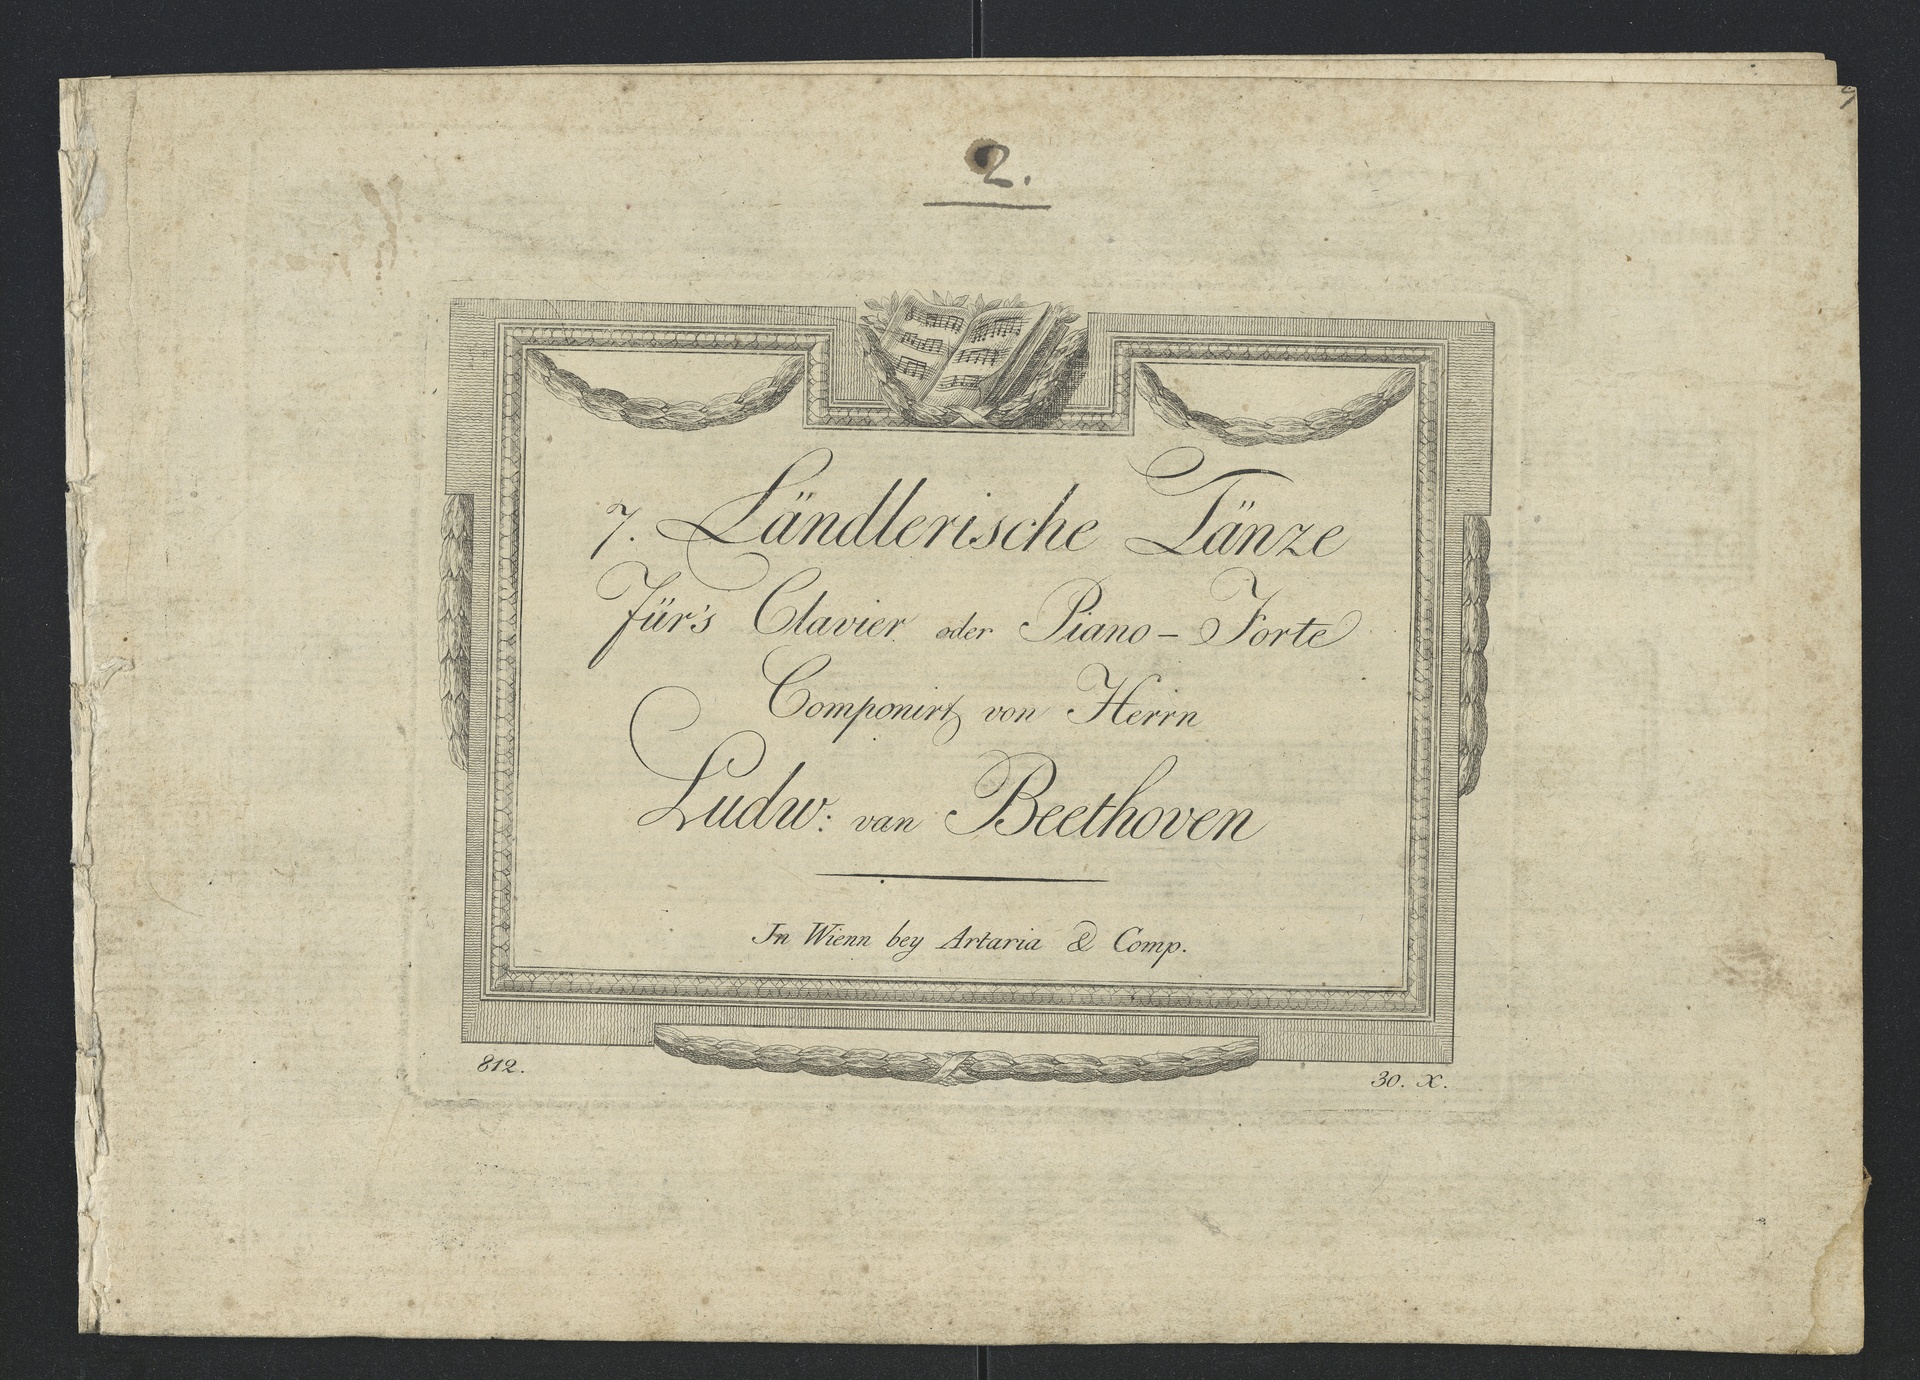 2.
7. Ländlerische Tänze
Für's Clavier oder Piano-Forte
Componirt von Herrn
Ludw: van Beethoven
In Wienn bey Artaria & Comp.
812.
30. X.